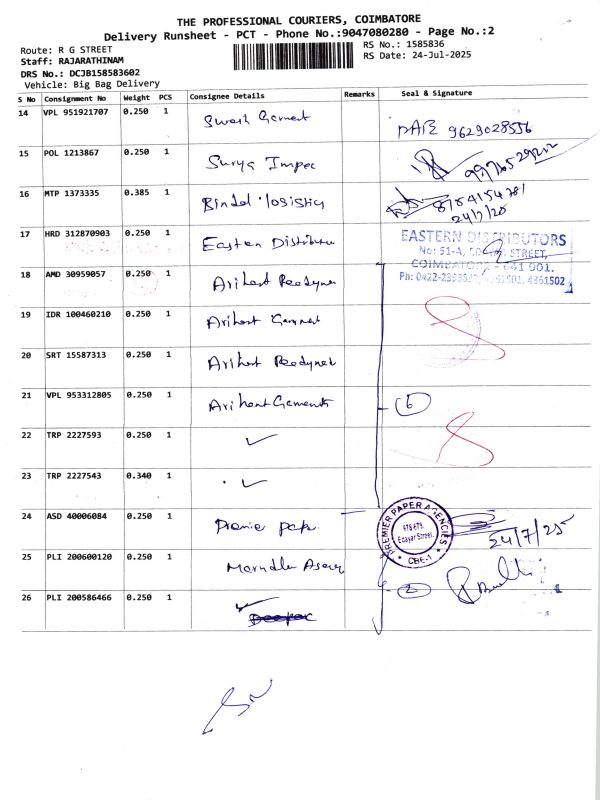 THE PROFESSIONAL COURIERS, COIMBATORE
Delivery Runsheet - PCT - Phone No.:9047080280 - Page No.:2
Route: R G STREET
RS No.: 1585836
Staff: RAJARATHINAM
RS Date: 24-Jul-2025
DRS No.: DCJB158583602
Vehicle: Big Bag Delivery
S No Consignment No Weight PCS Consignee Details Remarks Seal & Signature
14 VPL 951921707 0.250 1
9629028556
15 POL 1213867 0.250 1 Surya Impec
16 MTP 1373335 0.385 1 Bindal logistics
24/7/25
17 HRD 312870903 0.250 1 Eastern Distributor
EASTERN DISTRIBUTORS
No: 51-A, STREET,
COIMBATORE - 641 001.
Ph: 0422-
18 AMD 30959057 0.250 1 Arihant Readymer
19 IDR 100460210 0.250 1 Arihant Garment
20 SRT 15587313 0.250 1 Arihant Readymer
21 VPL 953312805 0.250 1 Arihant Garments
6
22 TRP 2227593 0.250 1
23 TRP 2227543 0.340 1
24 ASD 40006084 0.250 1 Premier paper
PREMIER PAPER AGENCIES
Edayar Street,
CBE-1
24/7/25
25 PLI 200600120 0.250 1
26 PLI 200586466 0.250 1
2